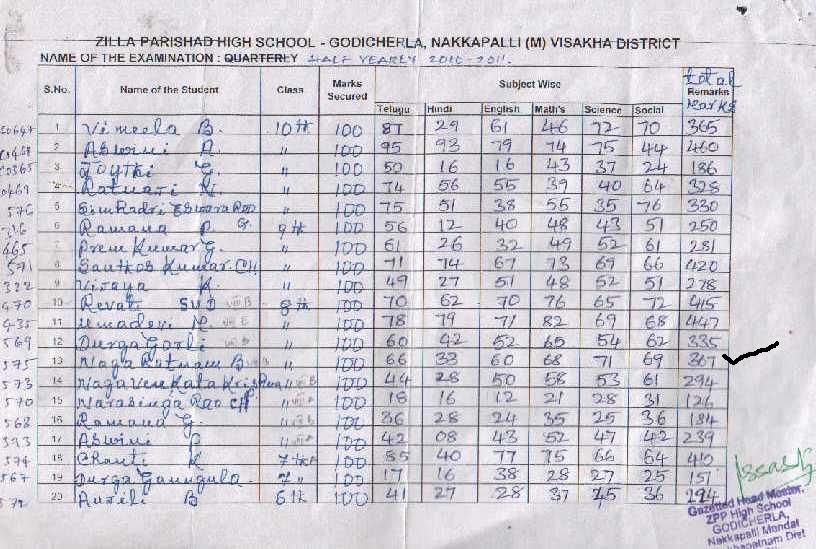 ZILLA PARISHAD HIGH SCHOOL - GODICHERLA, NAKKAPALLI (M) VISAKHA DISTRICT
NAME OF THE EXAMINATION : QUARTERLY HALF YEARLY 2010-2011.
S.No. Name of the Student Class Marks Secured Subject Wise total Remarks marks
Telugu Hindi English Math's Science Social
1 Vimeela B. 10th 100 87 29 61 46 72 70 365
2 Aswini A. " 100 95 93 79 74 75 44 460
3 Jyothi G. " 100 50 16 16 43 37 24 186
4 Ratnari K. " 100 74 56 55 39 40 64 328
576 5 Simhadri Eswara Rao " 100 75 51 38 55 35 76 330
6 Ramana P. G. 9th 100 56 12 40 48 43 51 250
465 7 Prem Kumar G. " 100 61 26 32 49 52 61 281
571 8 Santhos Kumar. CH " 100 71 74 67 73 69 66 420
322 9 Vijaya K. " 100 49 27 51 48 52 51 278
470 10 Revati 8th 100 70 62 70 76 65 72 415
435 11 Umadevi M. " 100 78 79 71 82 69 68 447
569 12 Durga Gorli " 100 60 42 52 65 54 62 335
575 13 Naga Ratnam B " 100 66 33 60 68 71 69 367
573 14 Nagavenkata Krishna " 100 44 28 50 58 53 61 294
570 15 Narasinga Rao CH " 100 18 16 12 21 28 31 126
568 16 Ramana G. " 100 36 28 24 35 25 36 184
393 17 Aswini P " 100 42 08 43 52 47 42 239
574 18 Chanti K 7th A 100 85 40 77 75 66 64 410
567 19 Durga Gaungula 7 " 100 17 16 38 28 27 25 151
572 20 B 6th 100 41 27 28 37 45 36
Gazetted Head Master,
ZPP High School
GODICHERLA,
Nakkapalli Mandal